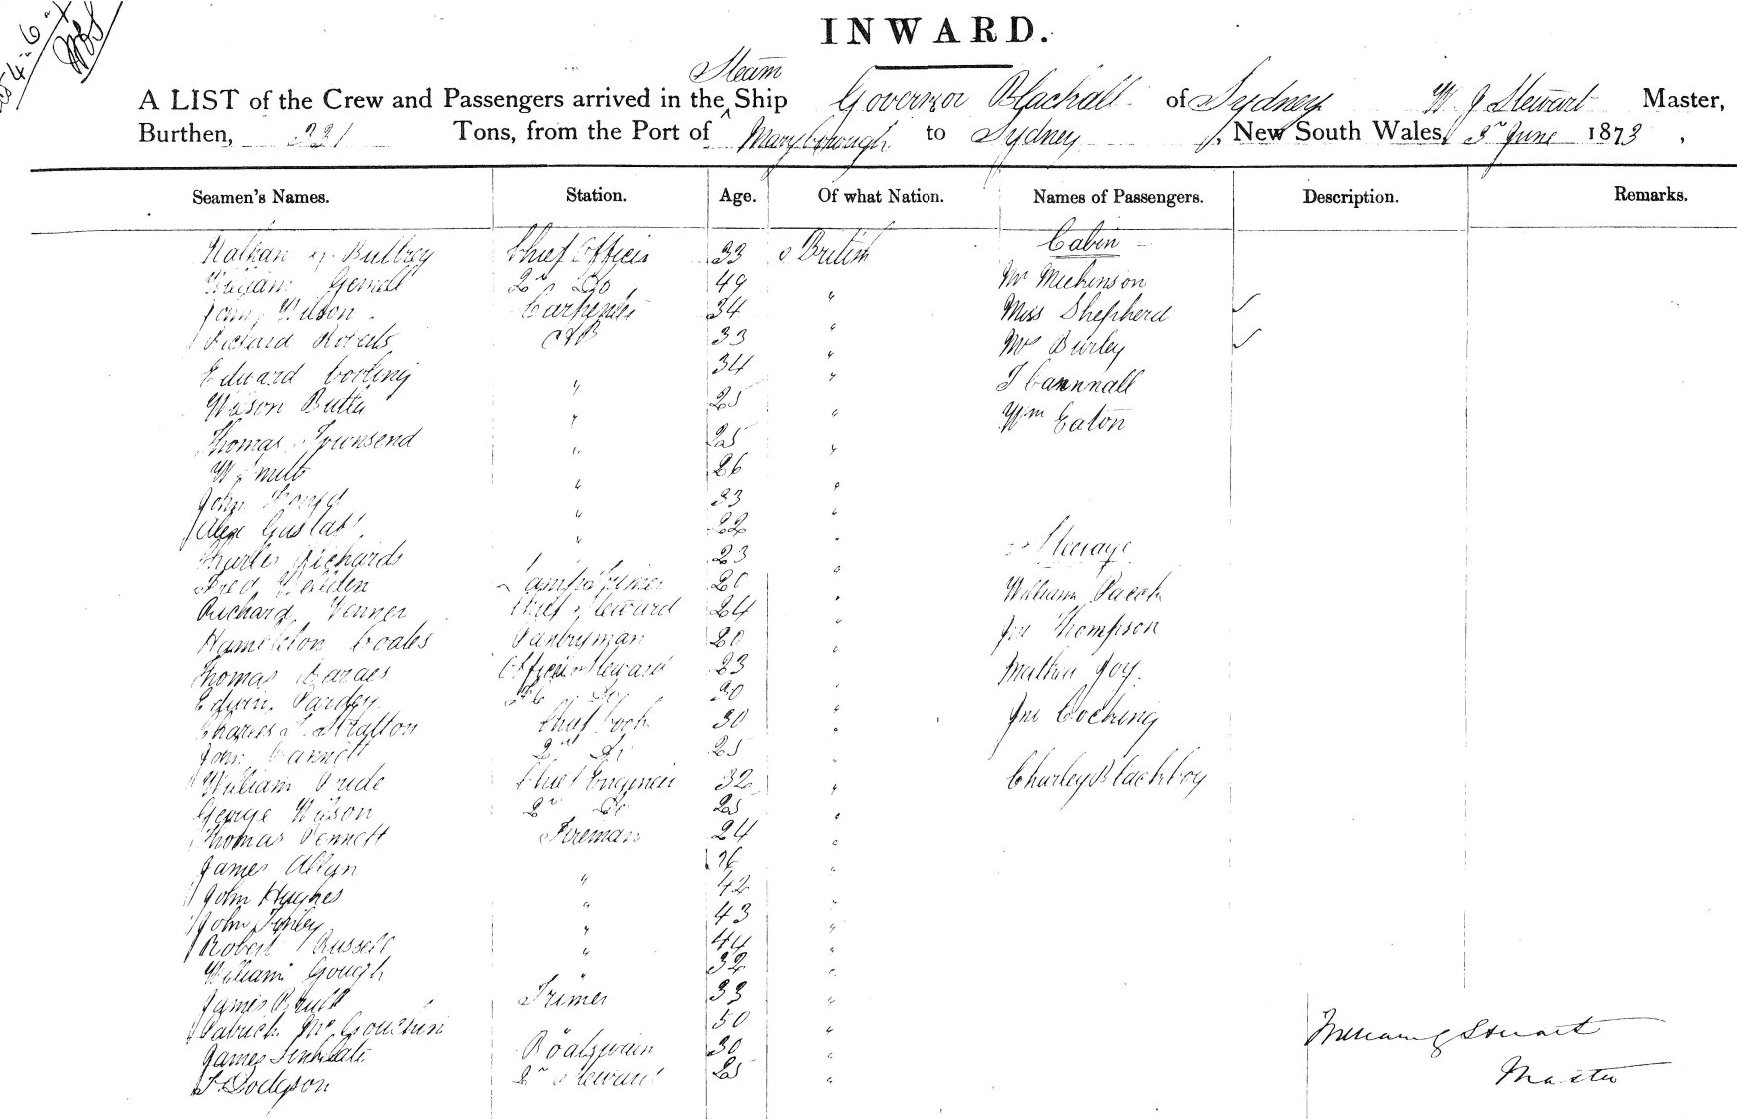 INWARD.
Steam
A LIST of the Crew and Passengers arrived in the ^ Ship Governor Blackall of Sydney W J Stewart Master,
Burthen, 221 Tons, from the Port of Maryborough to Sydney, New South Wales, 3rd June 1873,
Seamen's Names. Station. Age. Of what Nation. Names of Passengers. Description. Remarks.
Cabin
Nathan Bultrey Chief Officer 33 British
William 2nd Do 49 " Mr Mickinson
John Wilson Carpenter 34 " Miss Shepherd ✓
Richard Roberts AB 33 " Mrs Burley ✓
Edward Cooling " 34 " J Cannnall
Wilson Butler " 25 " Wm Eaton
Thomas Townsend " 25 "
W Smith " 26 "
John " 33 "
Alex Gustaf " 22 "
Charles Richards 23 " Steerage
Fred Lamp Trimer "
Richard Venner Chief Steward 24 " William Pacch
Hamilton Coales Pantryman 20 " Jno Thompson
Thomas Officers Steward 23 " Mathew Joy
Edwin Pardey 30 "
Charles Stratton Chief Cook 30 " Jno Cocking
John 2nd Do 25
William Pride Chief Engineer 32 " Charley Blackboy
George Wilson 2nd Do 25 "
Thomas Pennett Fireman 24 "
James Allyn " "
John Hughes " 42 "
John Finley " 43 "
Robert Russell " 44 "
William Gough " 32 "
James Trimer 33 "
Patrick 50 "
James Boatswain 30 "
F Dodgson 2nd Steward 25 "
William J Stewart
Master